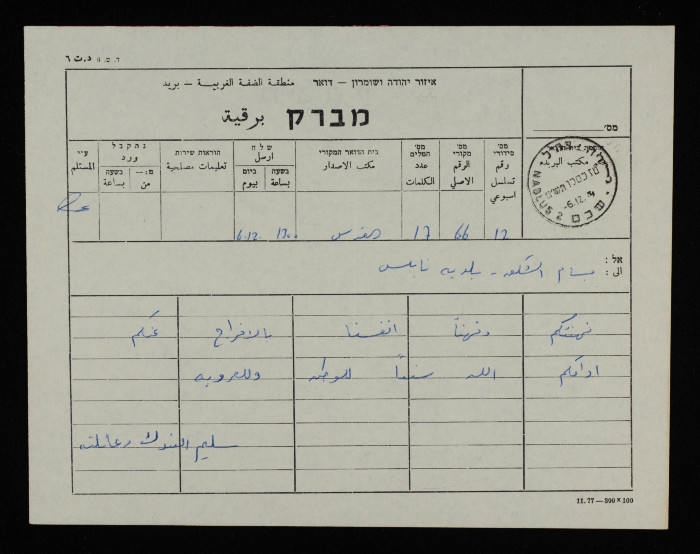 ד. ש. ת د.ت ٦
איזור יהודה ושומרון – דואר منطقة الضفة الغربية – بريد
מברק برقية
מס׳
מס׳ סידורי رقم تسلسل اسبوعي
מס׳ מקורי الرقم الاصلي
מס׳ המלים عدد الكلمات
בית הדואר המקורי مكتب الاصدار
שלח ارسل
בשעה بساعة
ביום بيوم
הוראות שירות تعليمات مصلحية
נתקבל ورد
בשעה بساعة
מ:— من
ע״י المستلم
مكتب البريد
NABLUS 2 שכם
-6.12.
12 66 17 القدس 1700 6.12
אל: الى: بسام الشكعه - بلدية نابلس
نهنئكم ونهنئ انفسنا بالافراج عنكم
ادامكم الله سنداً للوطن وللعروبه
سليم وعائلته
11.77—300×100